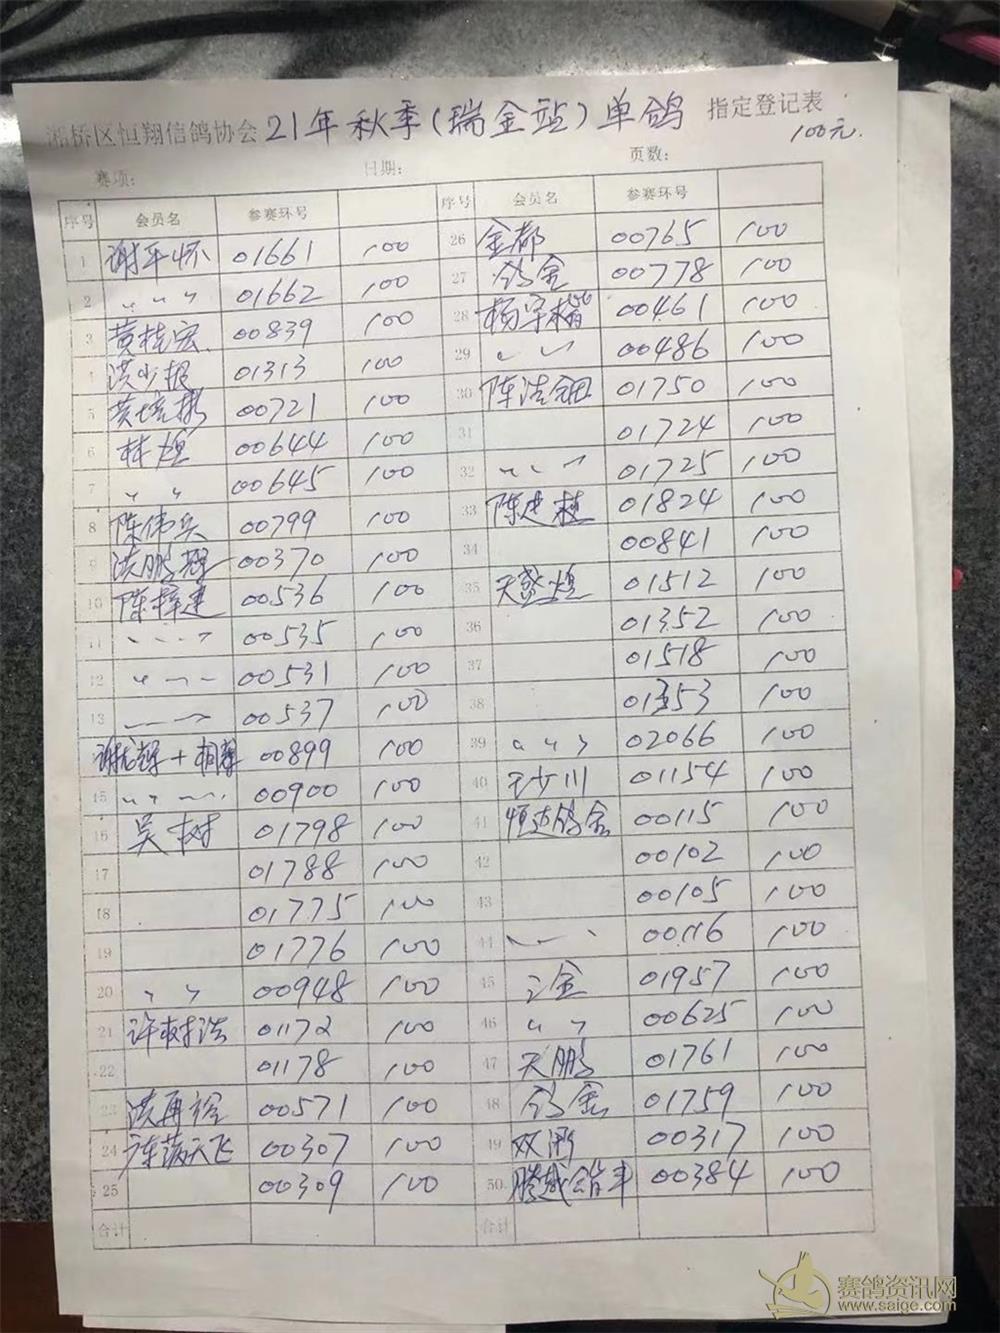 湘桥区恒翔信鸽协会 21年秋季(瑞金站)单鸽 指定登记表
100元.
赛项: 日期: 页数:
序号 会员名 参赛环号 序号 会员名 参赛环号
1 谢平怀 01661 100 26 金都 00765 100
2 〃 〃 〃 01662 100 27 鸽舍 00778 100
3 黄桂宏 00839 100 28 杨宇楷 00461 100
4 洪少报 01313 100 29 〃 〃 00486 100
5 黄培彬 00721 100 30 陈浩钿 01750 100
6 林煌 00644 100 31 01724 100
7 〃 〃 00645 100 32 〃 〃 〃 01725 100
8 陈伟兵 00799 100 33 陈建植 01824 100
9 洪鹏辉 00370 100 34 00841 100
10 陈梓建 00536 100 35 天盛煌 01512 100
11 〃 〃 〃 00535 100 36 01352 100
12 〃 〃 〃 00531 100 37 01518 100
13 〃 〃 00537 100 38 01353 100
谢 + 00899 100 39 〃 〃 〃 02066 100
15 〃 〃 〃 00900 100 40 王少川 01154 100
16 吴树 01798 100 41 恒达鸽舍 00115 100
17 01788 100 42 00102 100
18 01775 100 43 00105 100
19 01776 100 44 〃 〃 00116 100
20 〃 〃 00948 100 45 金 01957 100
21 许树浩 01172 100 46 〃 〃 00625 100
22 01178 100 47 天鹏 01761 100
23 洪再 00571 100 48 鸽舍 01759 100
24 满天飞 00307 100 49 双 00317 100
25 00309 100 50 腾越 00384 100
合计 合计
赛鸽资讯网
www.saige.com